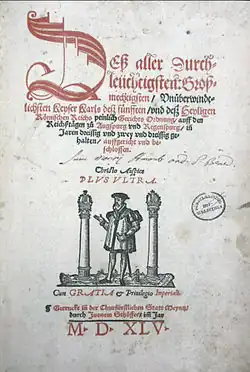 Deß aller Durch-
leuchtigsten Groß-
mechtigsten / Vnüberwinde-
lichsten Keyser Karls deß fünfften / vnd deß Heyligen
Römischen Reichs peinlich Gerichts Ordnung / auff den
Reichßtägen zů Augspurg vnd Regenspurg / in
Jaren dreissig vnd zwey vnd dreissig ge-
halten / auffgericht vnd be-
schlossen.
Christo Auspice
PLVS VLTRA.
Cum GRATIA & Priuilegio Imperiali.
Getruckt in der Churfürstlichen Statt Meyntz /
durch Juonem Schöffer / im Jar
M D XLV